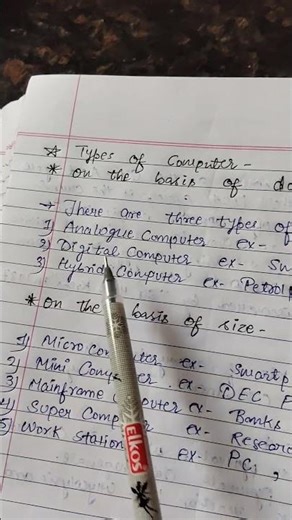 ☆ Types of Computer -
* on the basis of da
→ There are three types of
1) Analogue Computer ex-
2) Digital Computer ex- Sm
3) Hybrid Computer ex- Petrol
* On the basis of size -
1) Micro computer ex- Smartp
2) Mini Computer ex- DEC P
3) Mainframe Computer ex- Banks
4) Super Computer ex- Resear
5) Work Station ex- PC,
Elkos